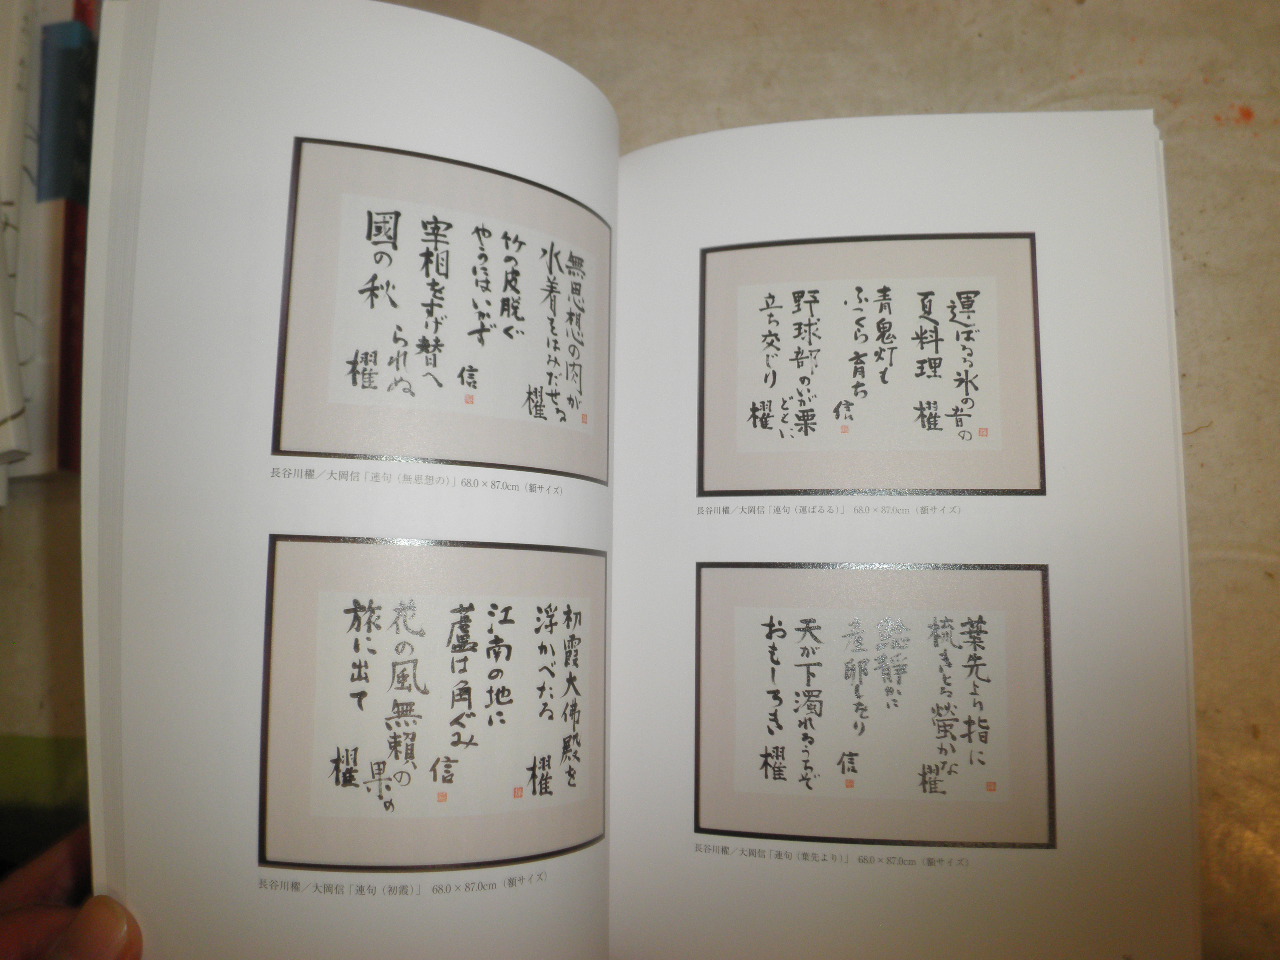 無思想の肉が
水着をはみだせる
櫂
竹の皮脱ぐ
やうにはいかず
信
宰相をすげ替へ
られぬ
國の秋
櫂
長谷川櫂／大岡信「連句（無思想の）」 68.0×87.0cm（額サイズ）
初霞大佛殿を
浮かべたる
櫂
江南の地に
蘆は角ぐみ
信
花の風無頼の
果の
旅に出て
櫂
長谷川櫂／大岡信「連句（初霞）」 68.0×87.0cm（額サイズ）
運ばるる氷の音の
夏料理 櫂
青鬼灯も
ふつくら育ち
信
野球部のいが栗
どもい
立ち交じり
櫂
長谷川櫂／大岡信「連句（運ばるる）」 68.0×87.0cm（額サイズ）
葉先より指に
梳きとる螢かな
櫂
鮠静かに
産卵したり
信
天が下濁れるうちぞ
おもしろき
櫂
長谷川櫂／大岡信「連句（葉先より）」 68.0×87.0cm（額サイズ）